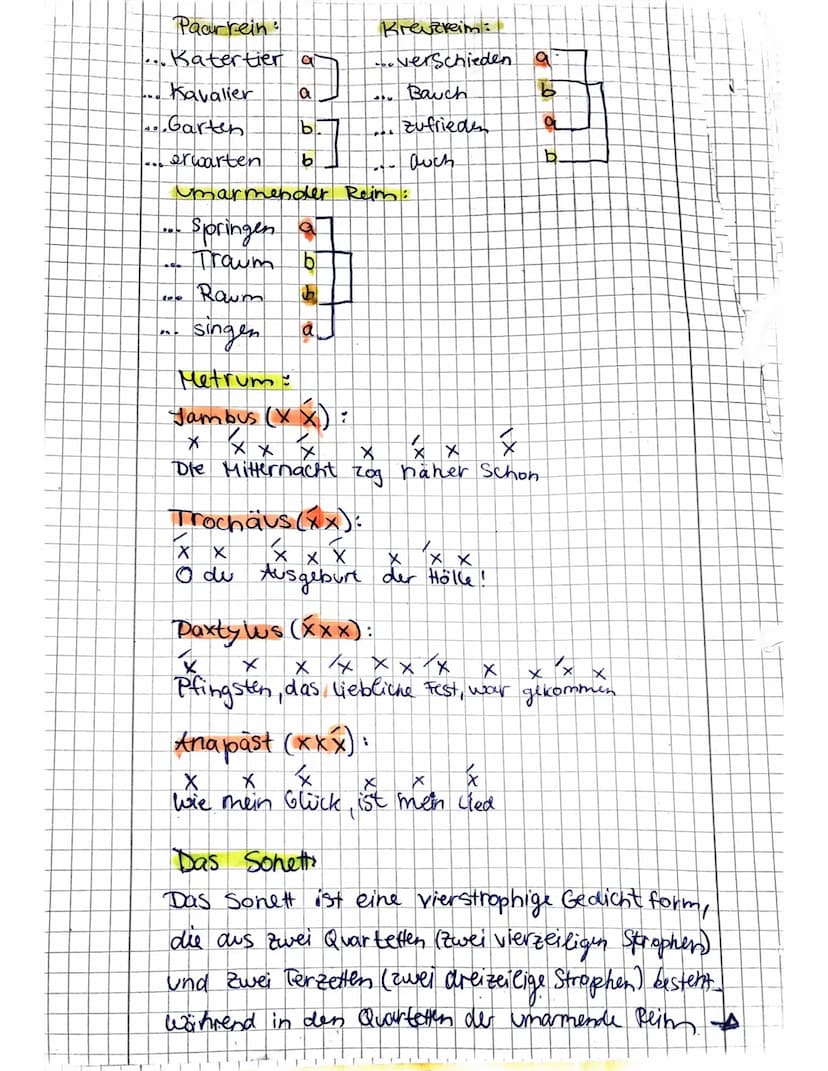 Paarrein: Kreuzreim:
... Katertier a ... verschieden a
... Kavalier a ... Bauch b
... Garten b ... zufrieden a
... erwarten b ... auch b
Umarmender Reim:
... Springen a
... Traum b
... Raum b
... singen a
Metrum:
Jambus (x x́):
x x́ x x́ x x́ x x́
Die Mitternacht zog näher schon
Trochäus (x́ x):
x́ x x́ x x́ x x́ x
O du Ausgeburt der Hölle!
Daxtylus (x́ x x):
x́ x x x́ x x x́ x x x́ x
Pfingsten, das liebliche Fest, war gekommen
Anapäst (x x x́):
x x x́ x x x́
Wie mein Glück, ist mein Lied
Das Sonett
Das Sonett ist eine vierstrophige Gedichtform,
die aus zwei Quartetten (zwei vierzeiligen Strophen)
und zwei Terzetten (zwei dreizeilige Strophen) besteht.
Während in den Quartetten der umarmende Reim →